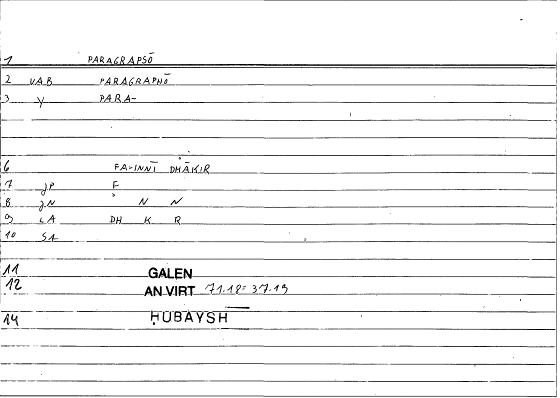 1 PARAGRAPSŌ
2 VAB PARAGRAPHŌ
3 Y PARA-
6 FA-INNĪ DHĀKIR
7 JP F
8 JN N N
9 LA DH K R
10 SA
11 GALEN
12 AN VIRT 71.18 = 37.19
14 ḤUBAYSH